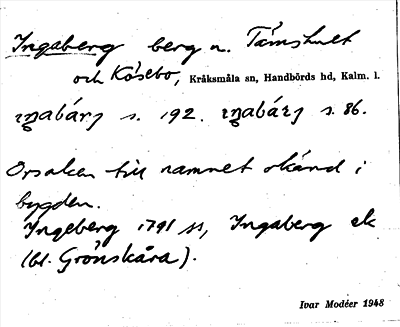 Ingaberg berg n. Tämshult
och Kösebo, Kråksmåla sn, Handbörds hd, Kalm. l.
s. 192. s. 86.
Orsaken till namnet okänd i
bygden.
Ingeberg 1791 Ingaberg ek
(bl. Grönskåra).
Ivar Modéer 1948